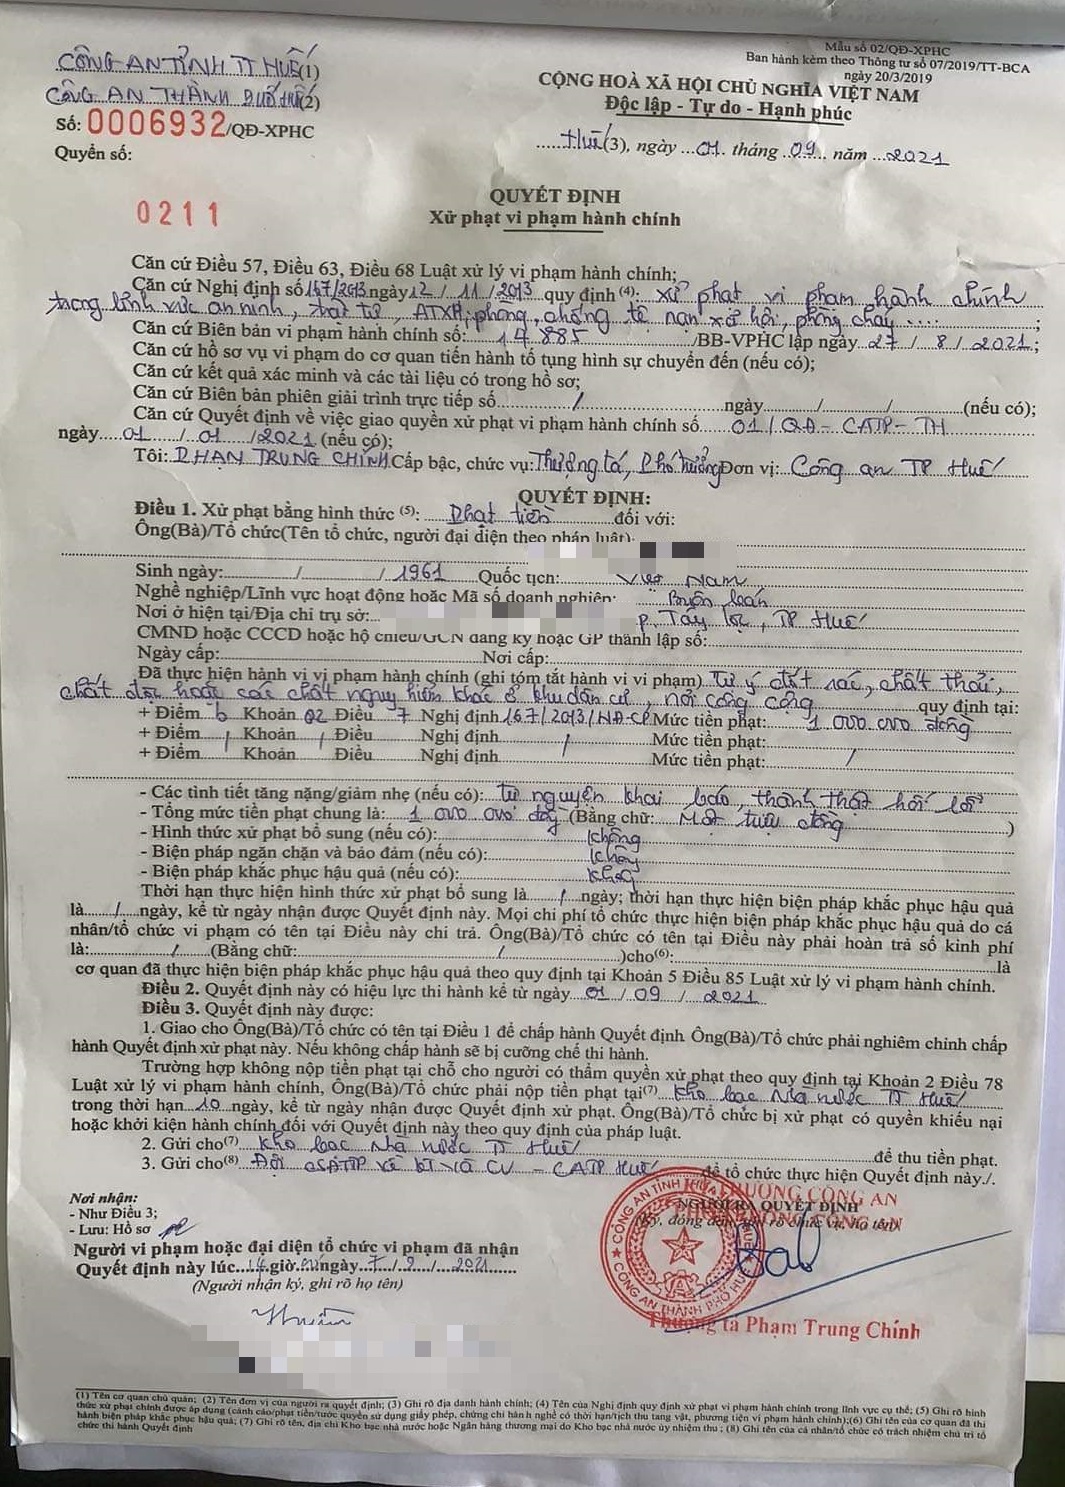 Mẫu số 02/QĐ-XPHC
Ban hành kèm theo Thông tư số 07/2019/TT-BCA
ngày 20/3/2019
CÔNG AN TỈNH TT HUẾ(1)
CÔNG AN THÀNH PHỐ HUẾ(2)
Số: 0006932/QĐ-XPHC
Quyển số:
0211
CỘNG HOÀ XÃ HỘI CHỦ NGHĨA VIỆT NAM
Độc lập - Tự do - Hạnh phúc
Huế(3), ngày 01 tháng 09 năm 2021
QUYẾT ĐỊNH
Xử phạt vi phạm hành chính
Căn cứ Điều 57, Điều 63, Điều 68 Luật xử lý vi phạm hành chính;
Căn cứ Nghị định số 167/2013 ngày 12/11/2013 quy định (4): xử phạt vi phạm hành chính
trong lĩnh vực an ninh, trật tự, ATXH, phòng, chống tệ nạn xã hội, phòng cháy...;
Căn cứ Biên bản vi phạm hành chính số: 14885 /BB-VPHC lập ngày 27/8/2021;
Căn cứ hồ sơ vụ vi phạm do cơ quan tiến hành tố tụng hình sự chuyển đến (nếu có);
Căn cứ kết quả xác minh và các tài liệu có trong hồ sơ;
Căn cứ Biên bản phiên giải trình trực tiếp số / ngày / / (nếu có);
Căn cứ Quyết định về việc giao quyền xử phạt vi phạm hành chính số 01/QĐ-CATP-TH
ngày 01/01/2021 (nếu có);
Tôi: PHẠM TRUNG CHÍNH Cấp bậc, chức vụ: Thượng tá, Phó trưởng Đơn vị: Công an TP Huế
QUYẾT ĐỊNH:
Điều 1. Xử phạt bằng hình thức (5): Phạt tiền đối với:
Ông(Bà)/Tổ chức(Tên tổ chức, người đại diện theo pháp luật):
Sinh ngày: / / 1961 Quốc tịch: Việt Nam
Nghề nghiệp/Lĩnh vực hoạt động hoặc Mã số doanh nghiệp: Buôn bán
Nơi ở hiện tại/Địa chỉ trụ sở: p. Tây Lộc, TP Huế
CMND hoặc CCCD hoặc hộ chiếu/GCN đăng ký hoặc GP thành lập số:
Ngày cấp: Nơi cấp:
Đã thực hiện hành vi vi phạm hành chính (ghi tóm tắt hành vi vi phạm) Tự ý đốt rác, chất thải,
chất độc hoặc các chất nguy hiểm khác ở khu dân cư, nơi công cộng quy định tại:
+ Điểm b Khoản 02 Điều 7 Nghị định 167/2013/NĐ-CP Mức tiền phạt: 1.000.000 đồng
+ Điểm / Khoản / Điều Nghị định / Mức tiền phạt:
+ Điểm Khoản Điều Nghị định Mức tiền phạt: /
- Các tình tiết tăng nặng/giảm nhẹ (nếu có): tự nguyện khai báo, thành thật hối lỗi
- Tổng mức tiền phạt chung là: 1.000.000 đồng (Bằng chữ: Một triệu đồng )
- Hình thức xử phạt bổ sung (nếu có): Không
- Biện pháp ngăn chặn và bảo đảm (nếu có): Không
- Biện pháp khắc phục hậu quả (nếu có): Không
Thời hạn thực hiện hình thức xử phạt bổ sung là / ngày; thời hạn thực hiện biện pháp khắc phục hậu quả
là / ngày, kể từ ngày nhận được Quyết định này. Mọi chi phí tổ chức thực hiện biện pháp khắc phục hậu quả do cá
nhân/tổ chức vi phạm có tên tại Điều này chi trả. Ông(Bà)/Tổ chức có tên tại Điều này phải hoàn trả số kinh phí
là: / (Bằng chữ: / )cho(6): là
cơ quan đã thực hiện biện pháp khắc phục hậu quả theo quy định tại Khoản 5 Điều 85 Luật xử lý vi phạm hành chính.
Điều 2. Quyết định này có hiệu lực thi hành kể từ ngày 01/09/2021
Điều 3. Quyết định này được:
1. Giao cho Ông(Bà)/Tổ chức có tên tại Điều 1 để chấp hành Quyết định Ông(Bà)/Tổ chức phải nghiêm chỉnh chấp
hành Quyết định xử phạt này. Nếu không chấp hành sẽ bị cưỡng chế thi hành.
Trường hợp không nộp tiền phạt tại chỗ cho người có thẩm quyền xử phạt theo quy định tại Khoản 2 Điều 78
Luật xử lý vi phạm hành chính, Ông(Bà)/Tổ chức phải nộp tiền phạt tại(7) Kho bạc Nhà nước TT Huế
trong thời hạn 10 ngày, kể từ ngày nhận được Quyết định xử phạt. Ông(Bà)/Tổ chức bị xử phạt có quyền khiếu nại
hoặc khởi kiện hành chính đối với Quyết định này theo quy định của pháp luật.
2. Gửi cho(7) Kho bạc Nhà nước TT Huế để thu tiền phạt.
3. Gửi cho(8) Đội CSĐTTP về KT và CV - CATP Huế để tổ chức thực hiện Quyết định này./.
Nơi nhận:
- Như Điều 3;
- Lưu: Hồ sơ
NGƯỜI RA QUYẾT ĐỊNH
(Ký, đóng dấu, ghi rõ chức vụ, họ tên)
CÔNG AN TỈNH THỪA THIÊN HUẾ
CÔNG AN THÀNH PHỐ HUẾ
Thượng tá Phạm Trung Chính
Người vi phạm hoặc đại diện tổ chức vi phạm đã nhận
Quyết định này lúc 14 giờ ngày 7/9/2021
(Người nhận ký, ghi rõ họ tên)
(1) Tên cơ quan chủ quản; (2) Tên đơn vị của người ra quyết định; (3) Ghi rõ địa danh hành chính; (4) Tên của Nghị định quy định xử phạt vi phạm hành chính trong lĩnh vực cụ thể; (5) Ghi rõ hình
thức xử phạt chính được áp dụng (cảnh cáo/phạt tiền/tước quyền sử dụng giấy phép, chứng chỉ hành nghề có thời hạn/tịch thu tang vật, phương tiện vi phạm hành chính);(6) Ghi tên của cơ quan đã thi
hành biện pháp khắc phục hậu quả; (7) Ghi rõ tên, địa chỉ Kho bạc nhà nước hoặc Ngân hàng thương mại do Kho bạc nhà nước ủy nhiệm thu ; (8) Ghi tên của cá nhân/tổ chức có trách nhiệm chủ trì tổ
chức thi hành Quyết định